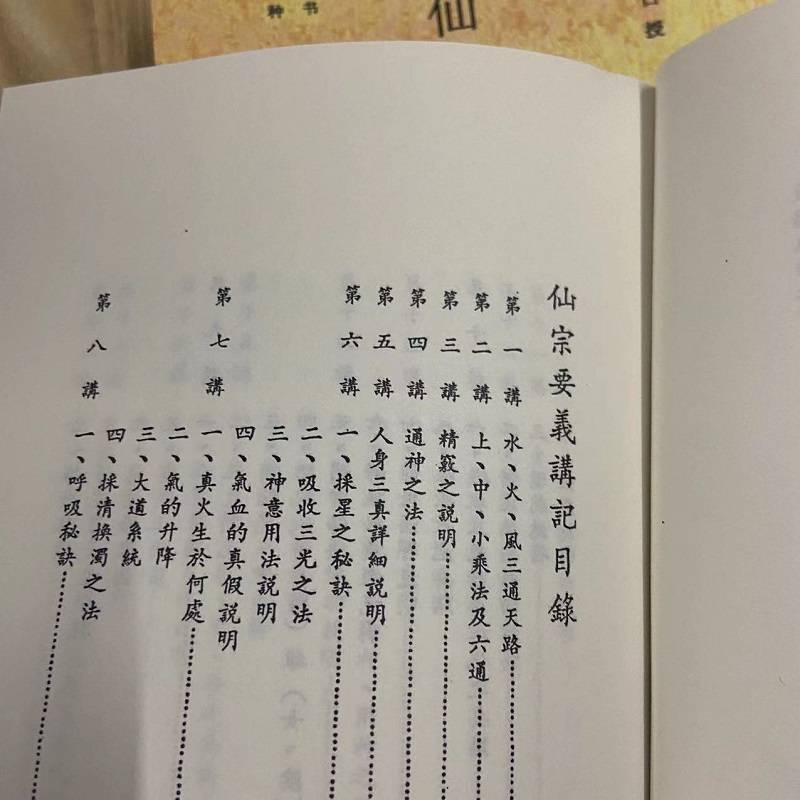 仙
授
书
种
仙宗要義講記目錄
第一講 水、火、風三通天路
第二講 上、中、小乘法及六通
第三講 精竅之説明
第四講 通神之法
第五講 人身三真詳細説明
第六講 一、採星之秘訣
二、吸收三光之法
三、神意用法説明
四、氣血的真假説明
第七講 一、真火生於何處
二、氣的升降
三、大道系統
四、採清換濁之法
第八講 一、呼吸秘訣